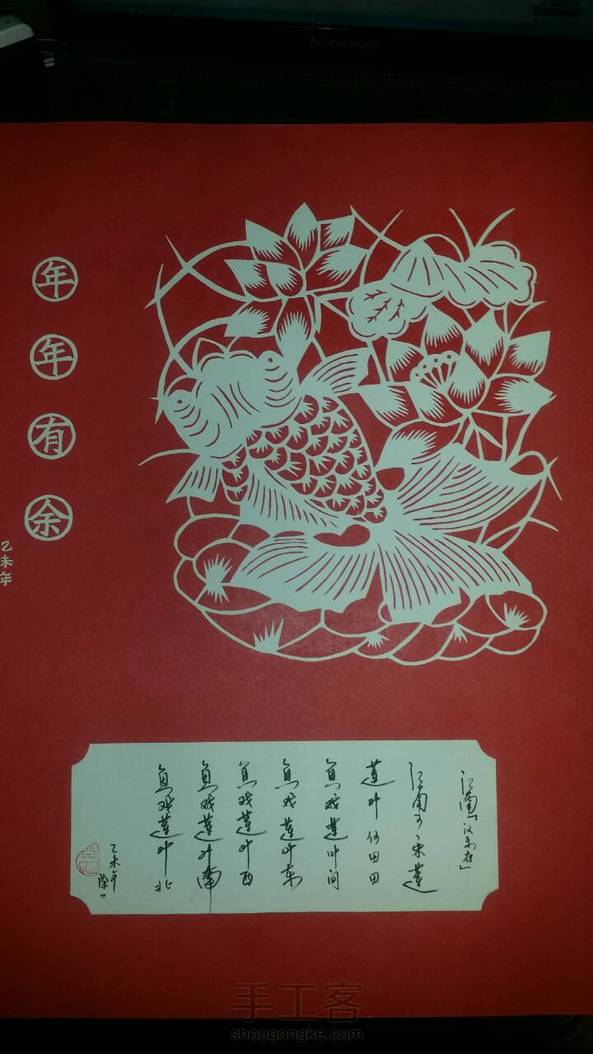 lenovo
年年有余
乙未年
江南「汉乐府」
江南可采莲
莲叶何田田
鱼戏莲叶间
鱼戏莲叶东
鱼戏莲叶西
鱼戏莲叶南
鱼戏莲叶北
乙未年
手工客
shougongke.com